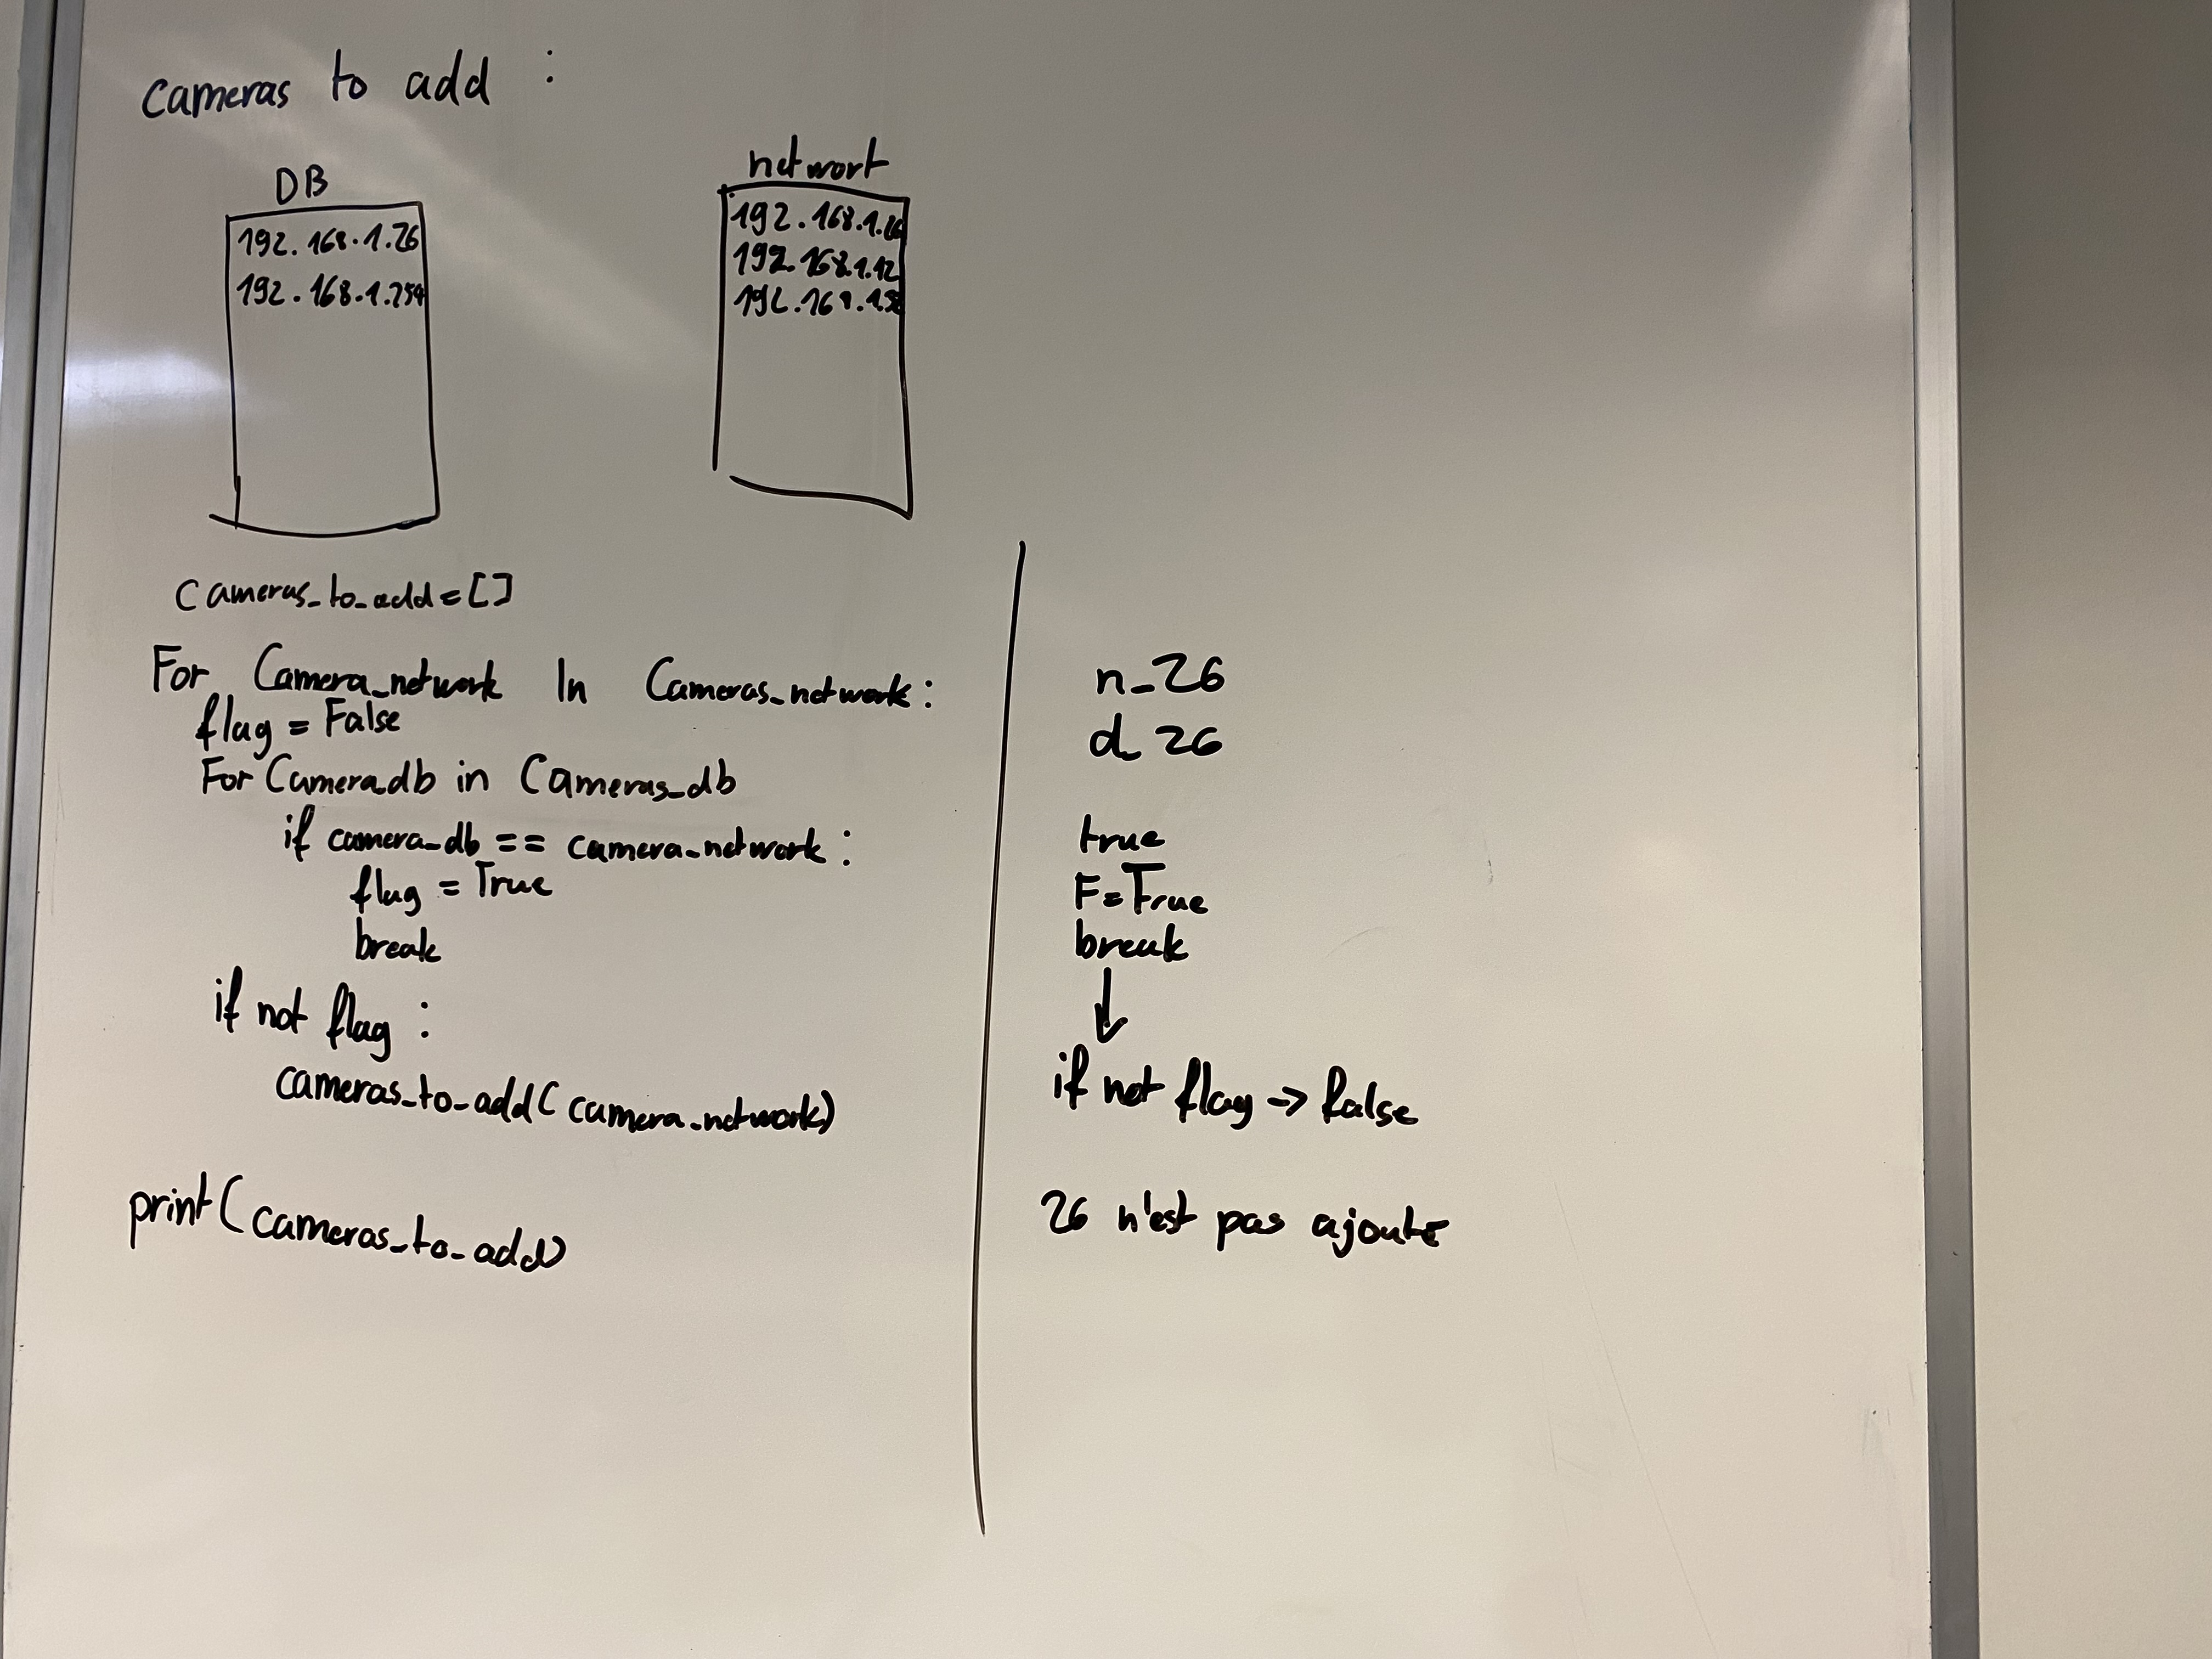 cameras to add :
DB
192.168.1.26
192.168.1.254
networt
192.168.1.26
192.168.1.12
192.168.1.
cameras_to_add = []
For Camera_network In Cameras_network :
flag = False
For Camera_db in Cameras_db
if camera_db == camera_network :
flag = True
break
if not flag :
cameras_to_add( camera_network)
print( cameras_to_add)
n_26
d_26
true
F = True
break
↓
if not flag -> false
26 n'est pas ajoute